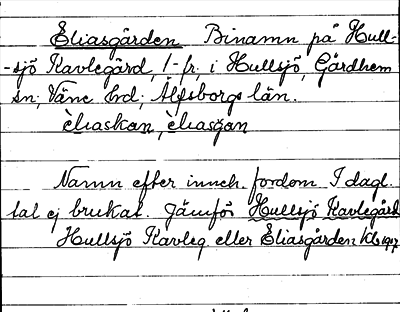 Eliasgården Binamn på Hull-
-sjö Kavlegård, 1 fr, i Hullsjö, Gärdhem
sn; Väne hd; Älfsborgs län.
èliaskan, èliasgan
Namn efter inneh. fordom I dagl.
tal ej brukat. Jämför Hullsjö Kavlegård
Hullsjö Kavleg eller Eliasgården Kb 1917